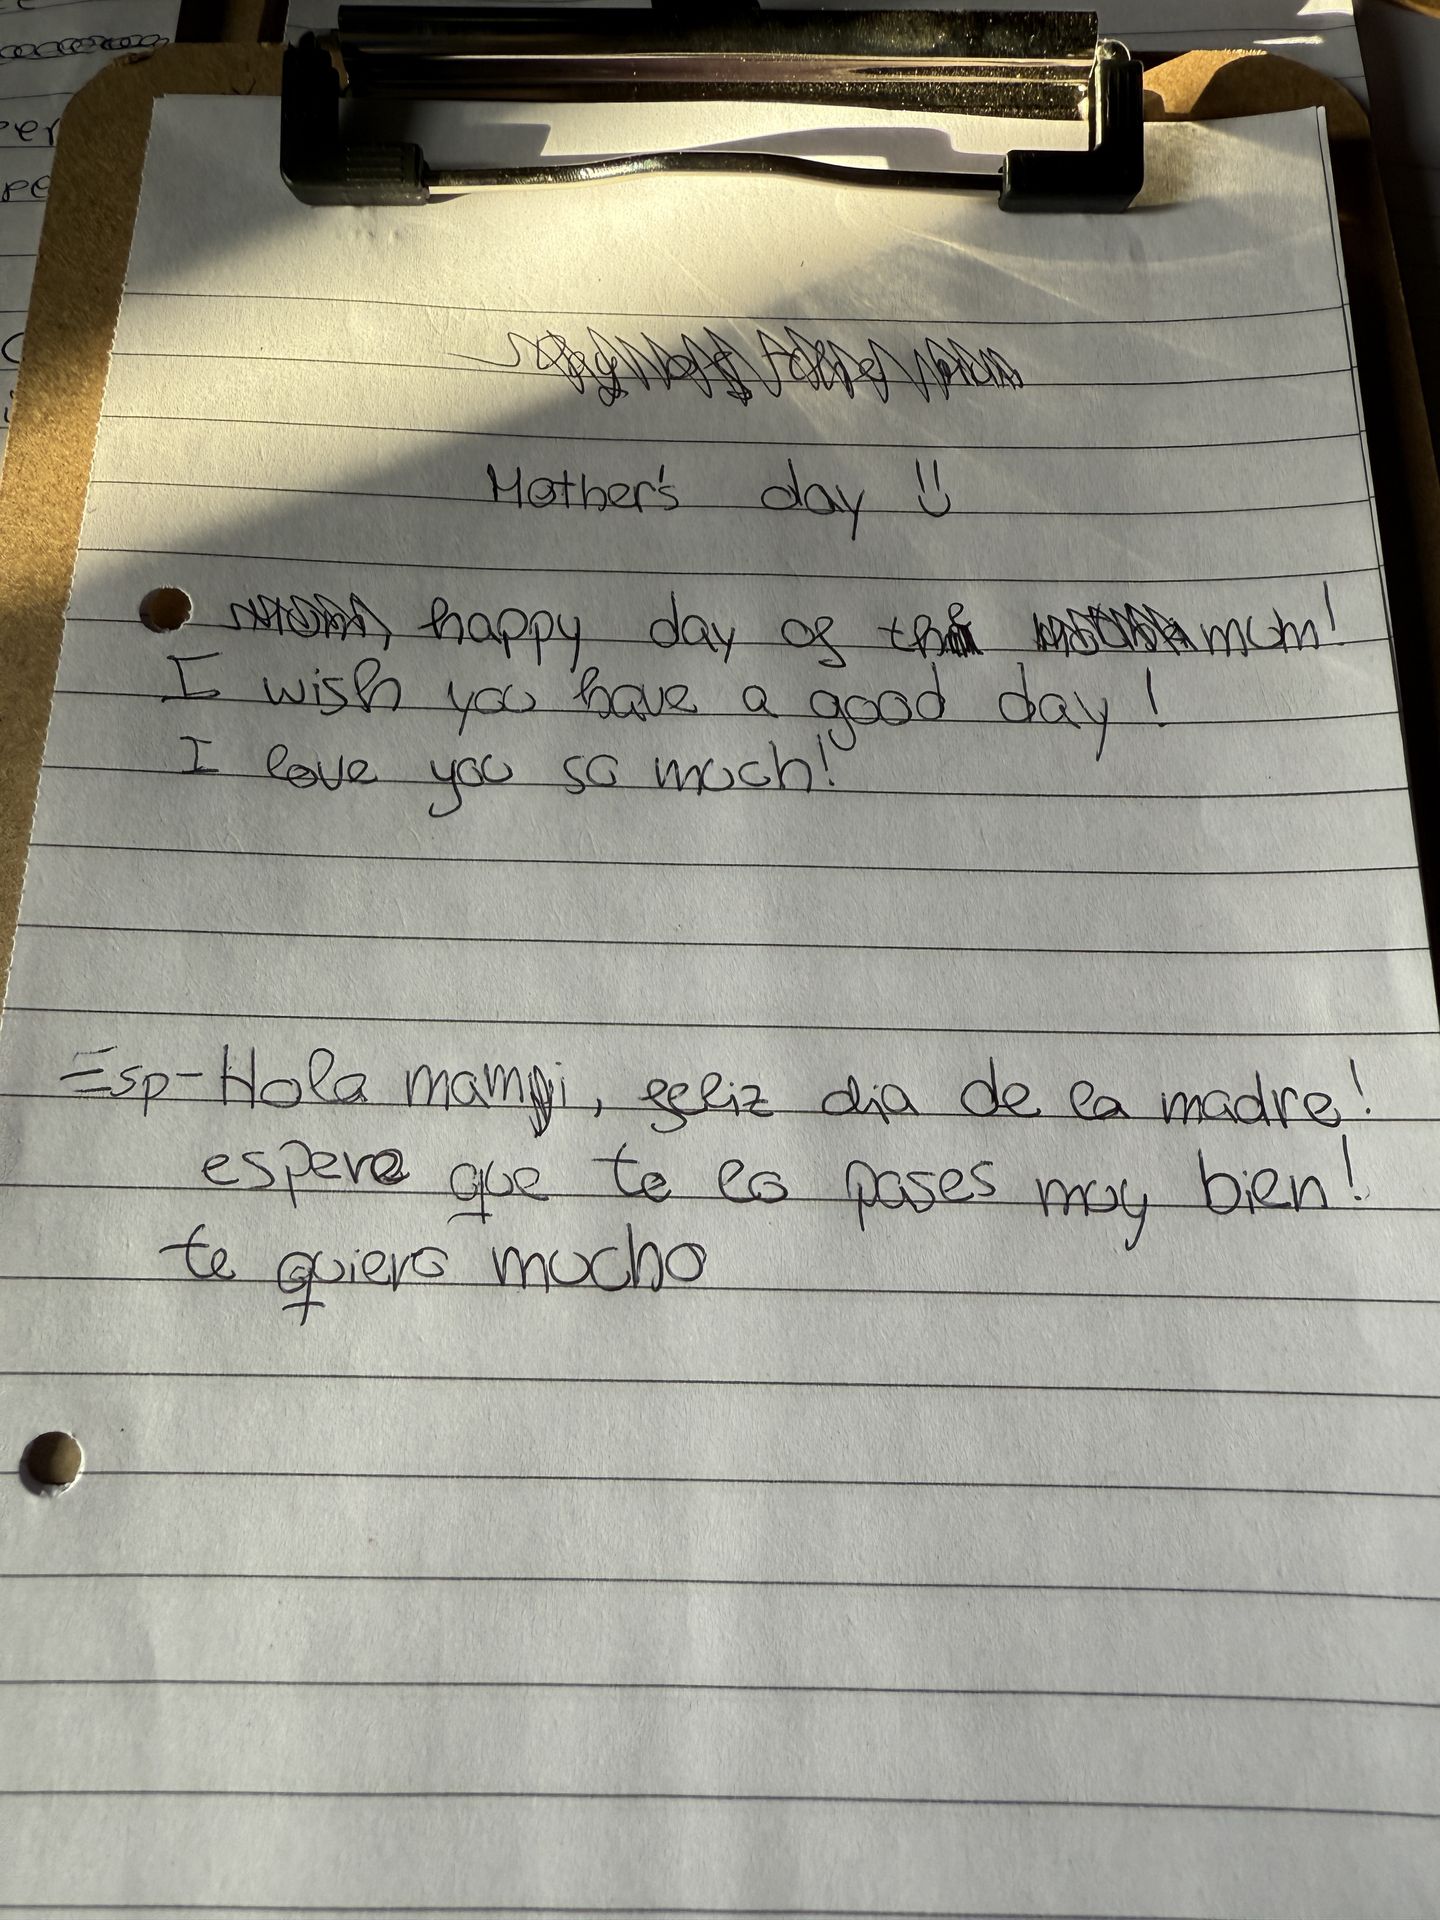 Mother's day
happy day of the mum!
I wish you have a good day!
I love you so much!
Esp-Hola mami, feliz dia de la madre!
espero que te lo pases muy bien!
te quiero mucho